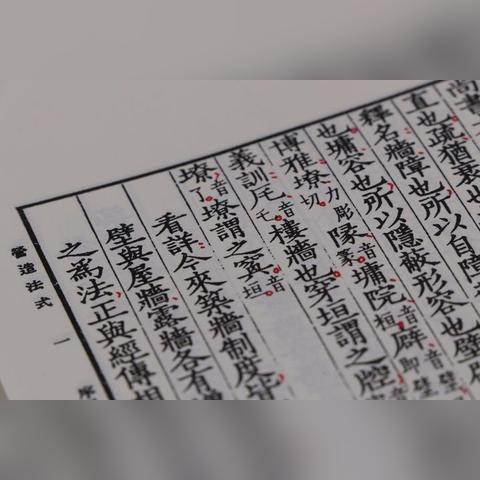 尚書
直也疏猶衰也
釋名牆障也所以自障
也墉容也所以隱蔽形容也壁
博雅㙩力彫切隊音篆墉院音桓廦音壁即壁
義訓厇音乇樓牆也穿垣謂之腔
㙩音了㙩謂之音垣
看詳今來築牆制度皆
壁與屋牆露牆各有
之為法正與經傳相
營造法式 一 序